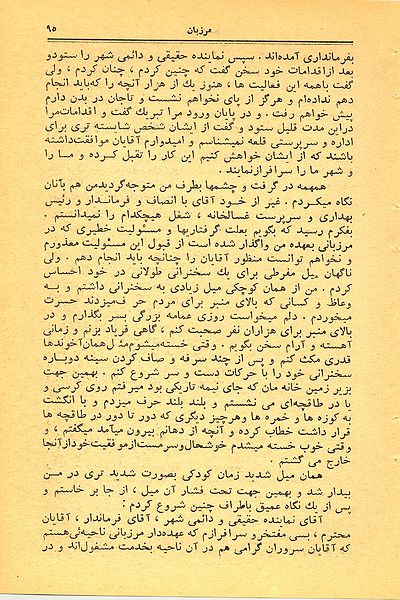 مرزبان
۹۵
بفرمانداری آمده‌اند. سپس نماینده حقیقی و دائمی شهر را ستود و
بعد از اقدامات خود سخن گفت که چنین کردم، چنان کردم، ولی
گفت باهمه این فعالیت ها، هنوز یك از هزار آنچه را که باید انجام
دهم نداده‌ام و هرگز از پای نخواهم نشست و تاجان در بدن دارم
پیش خواهم رفت. و در پایان ورود مرا تبریك گفت و اقدامات مرا
دراین مدت قلیل ستود و گفت از ایشان شخص شایسته تری برای
اداره و سرپرستی قلعه نمیشناسم و امیدوارم آقایان موافقت داشته
باشند که از ایشان خواهش کنیم این کار را تقبل کرده و ما را
و شهر ما را سرافراز نمایند.
همهمه در گرفت و چشمها بطرف من متوجه گردید من هم بآنان
نگاه میکردم. غیر از خود آقای با انصاف و فرماندار و رئیس
بهداری و سرپرست غسالخانه، شغل هیچکدام را نمیدانستم.
بفکرم رسید که بگویم بعلت گرفتاریها و مسئولیت خطیری که در
مرزبانی بعهده من واگذار شده است از قبول این مسئولیت معذورم
و نخواهم توانست منظور آقایان را چنانچه باید انجام دهم. ولی
ناگهان میل مفرطی برای یك سخنرانی طولانی در خود احساس
کردم. من از همان کوچکی میل زیادی به سخنرانی داشتم و به
وعاظ و کسانی که بالای منبر برای مردم حرف میزدند حسرت
میخوردم. دلم میخواست روزی عمامه بزرگی بسر بگذارم و در
بالای منبر برای هزاران نفر صحبت کنم، گاهی فریاد بزنم و زمانی
آهسته و آرام سخن بگویم. وقتی خسته میشوم مثل همان آخوندها
قدری مکث کنم و پس از چند سرفه و صاف کردن سینه دوباره
سخنرانی خود را با حرکات دست و سر شروع کنم. بهمین جهت
بزیر زمین خانه مان که جای نیمه تاریکی بود میرفتم روی کرسی و
یا در طاقچه‌ای می نشستم و بلند بلند حرف میزدم و با انگشت
به کوزه ها و خمره ها و هرچیز دیگری که دور تا دور در طاقچه ها
قرار داشت خطاب کرده و آنچه از دهانم بیرون میآمد میگفتم، و
وقتی خوب خسته میشدم خوشحال و سرمست از موفقیت خود از آنجا
خارج می گشتم.
همان میل شدید زمان کودکی بصورت شدید تری در من
بیدار شد و بهمین جهت تحت فشار آن میل، از جا بر خاستم و
پس از یك نگاه عمیق باطراف چنین شروع کردم:
آقای نماینده حقیقی و دائمی شهر، آقای فرماندار، آقایان
محترم، بسی مفتخر و سرافرازم که عهده‌دار مرزبانی ناحیه‌ئی هستم
که آقایان سروران گرامی هم در آن ناحیه بخدمت مشغول‌اند و در